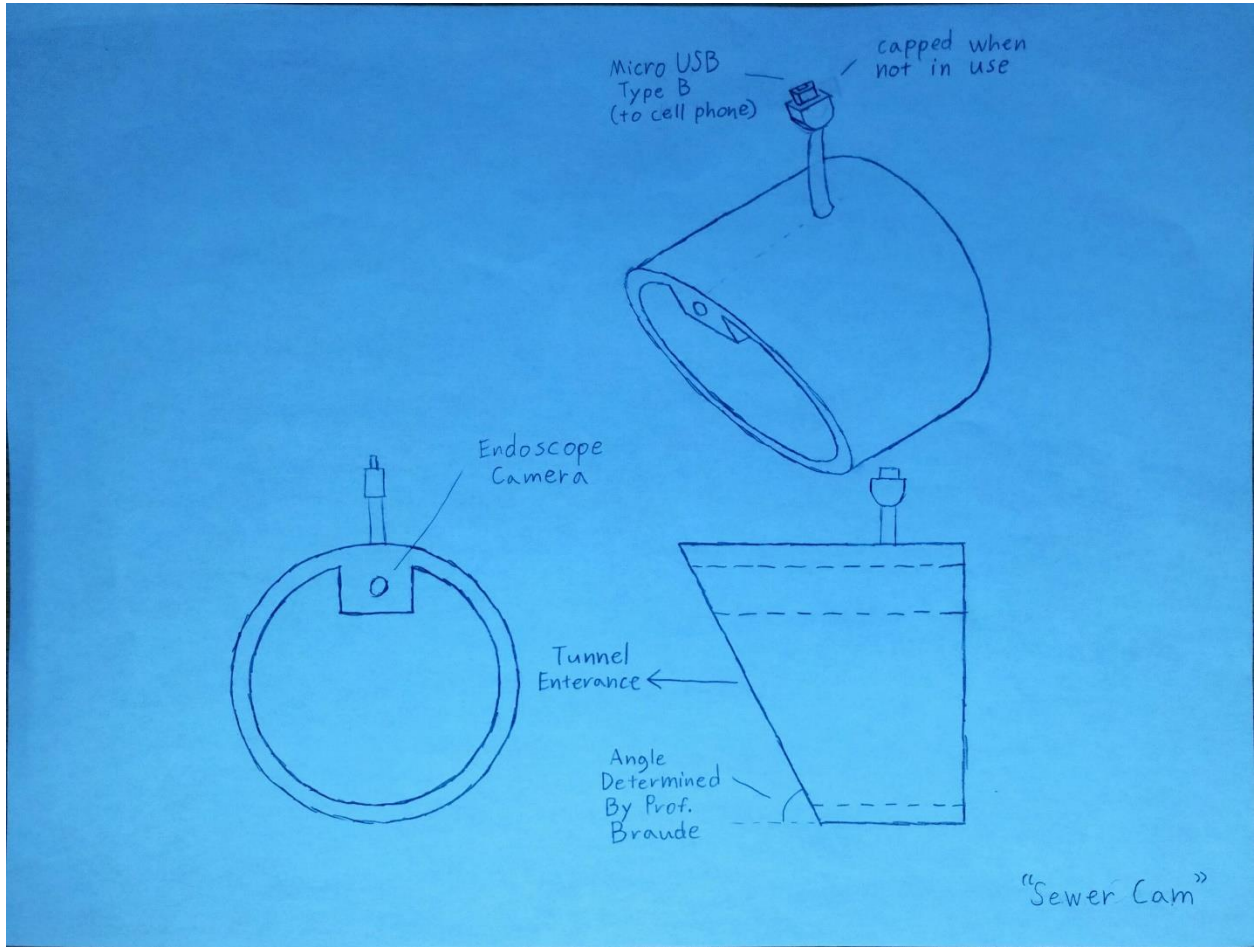 Micro USB
Type B
(to cell phone)
capped when
not in use
Endoscope
Camera
Tunnel
Enterance
Angle
Determined
By Prof.
Braude
"Sewer Cam"